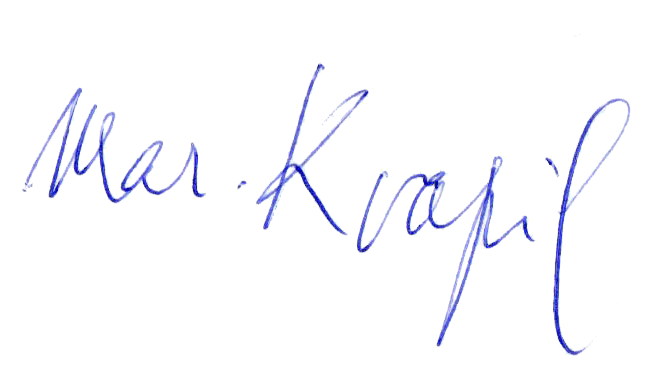 Mar. Kvapil